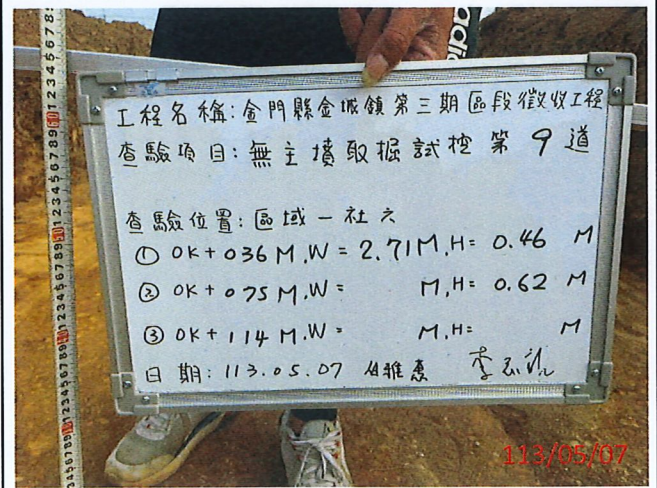 adidas
工程名稱:金門縣金城鎮第三期區段徵收工程
查驗項目:無主墳取掘試挖第9道
查驗位置:區域一社六
① 0K+036M.W=2.71M.H=0.46 M
② 0K+075M.W= M.H=0.62 M
③ 0K+114M.W= M.H= M
日期:113.05.07
113/05/07